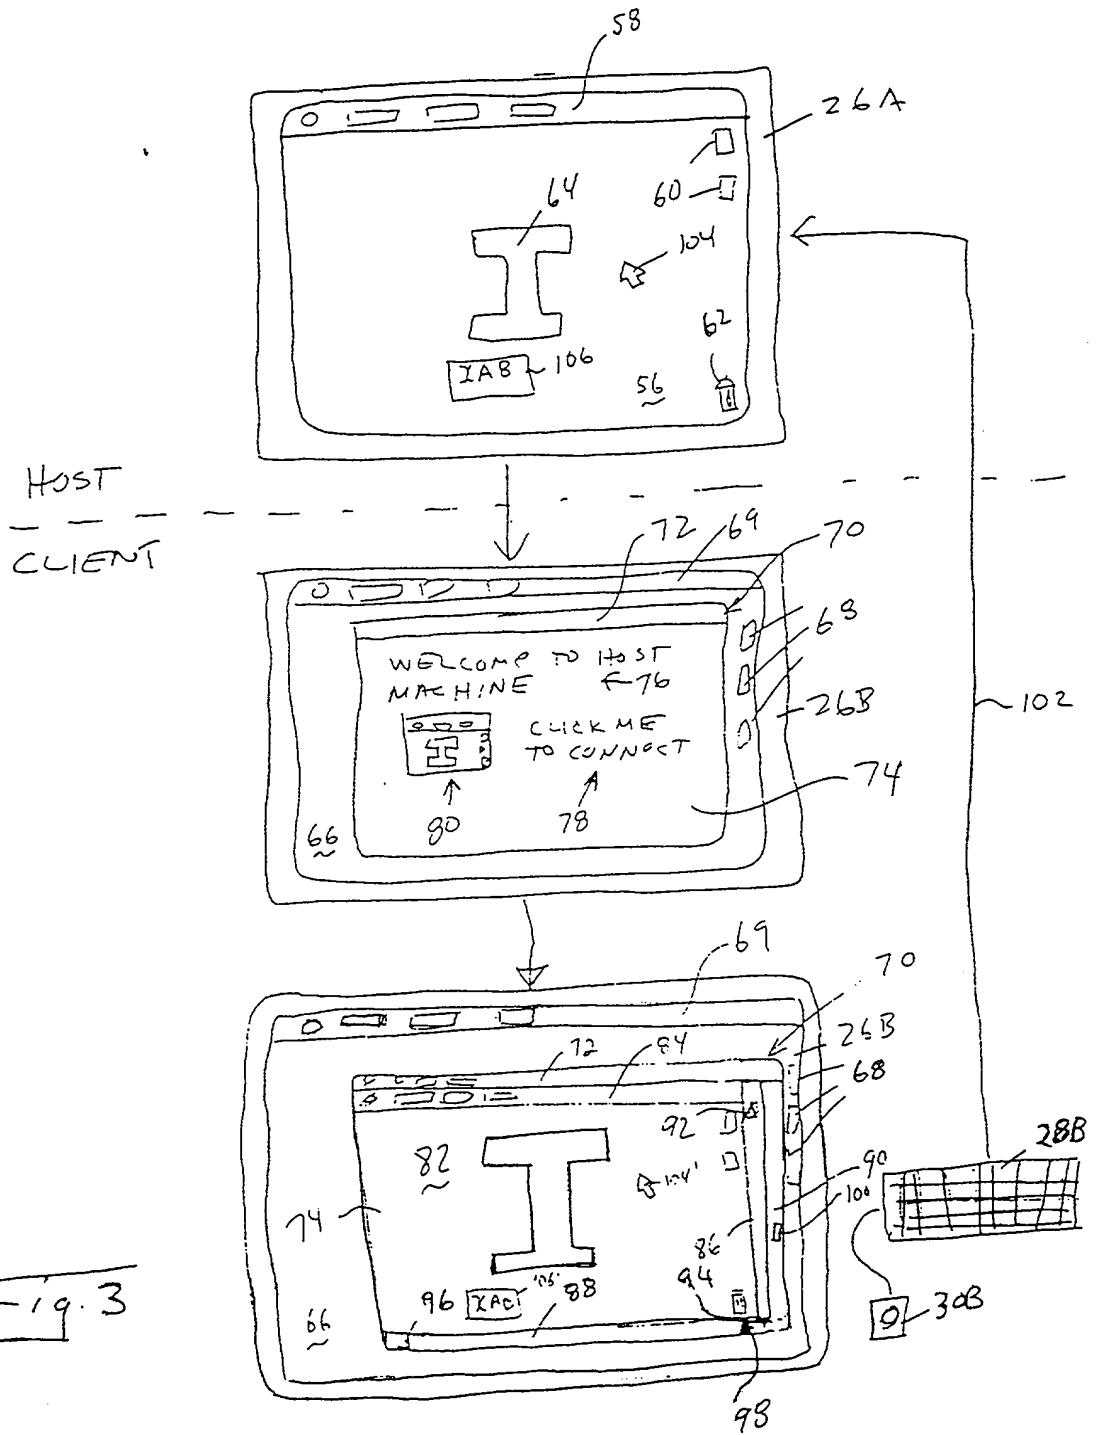 58
26A
64
60
104
62
XAB
106
56
HOST
CLIENT
72
69
70
WELCOME TO HOST
MACHINE
76
68
26B
102
CLICK ME
TO CONNECT
74
80
78
66
69
70
26B
72
84
68
92
28B
82
104'
90
100
74
86
94
96
XAC
106'
88
66
30B
98
Fig. 3